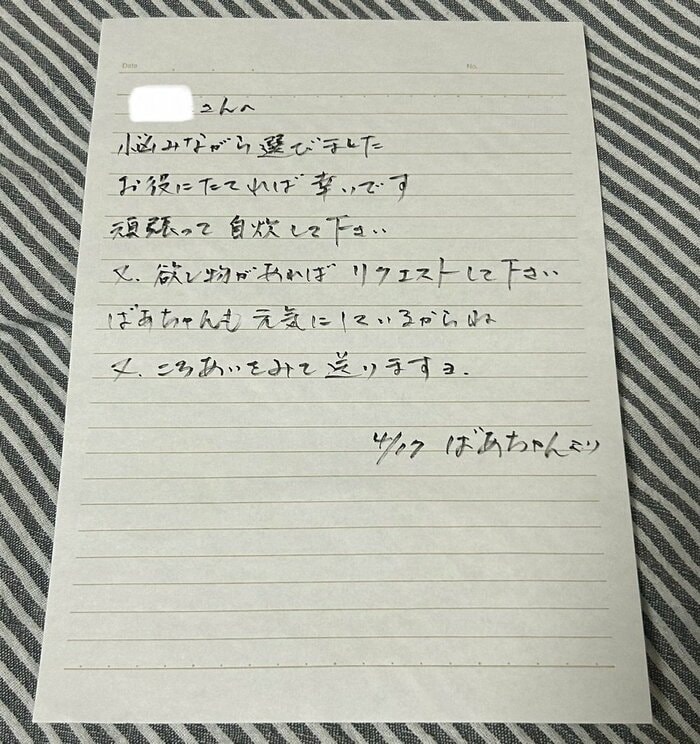 Date
No.
さんへ
悩みながら選びました
お役にたてれば幸いです
頑張って自炊して下さい
又、欲し物があればリクエストして下さい
ばあちゃんも元気にしているからね
又、ころあいをみて送りますヨ.
4/17 ばあちゃんより